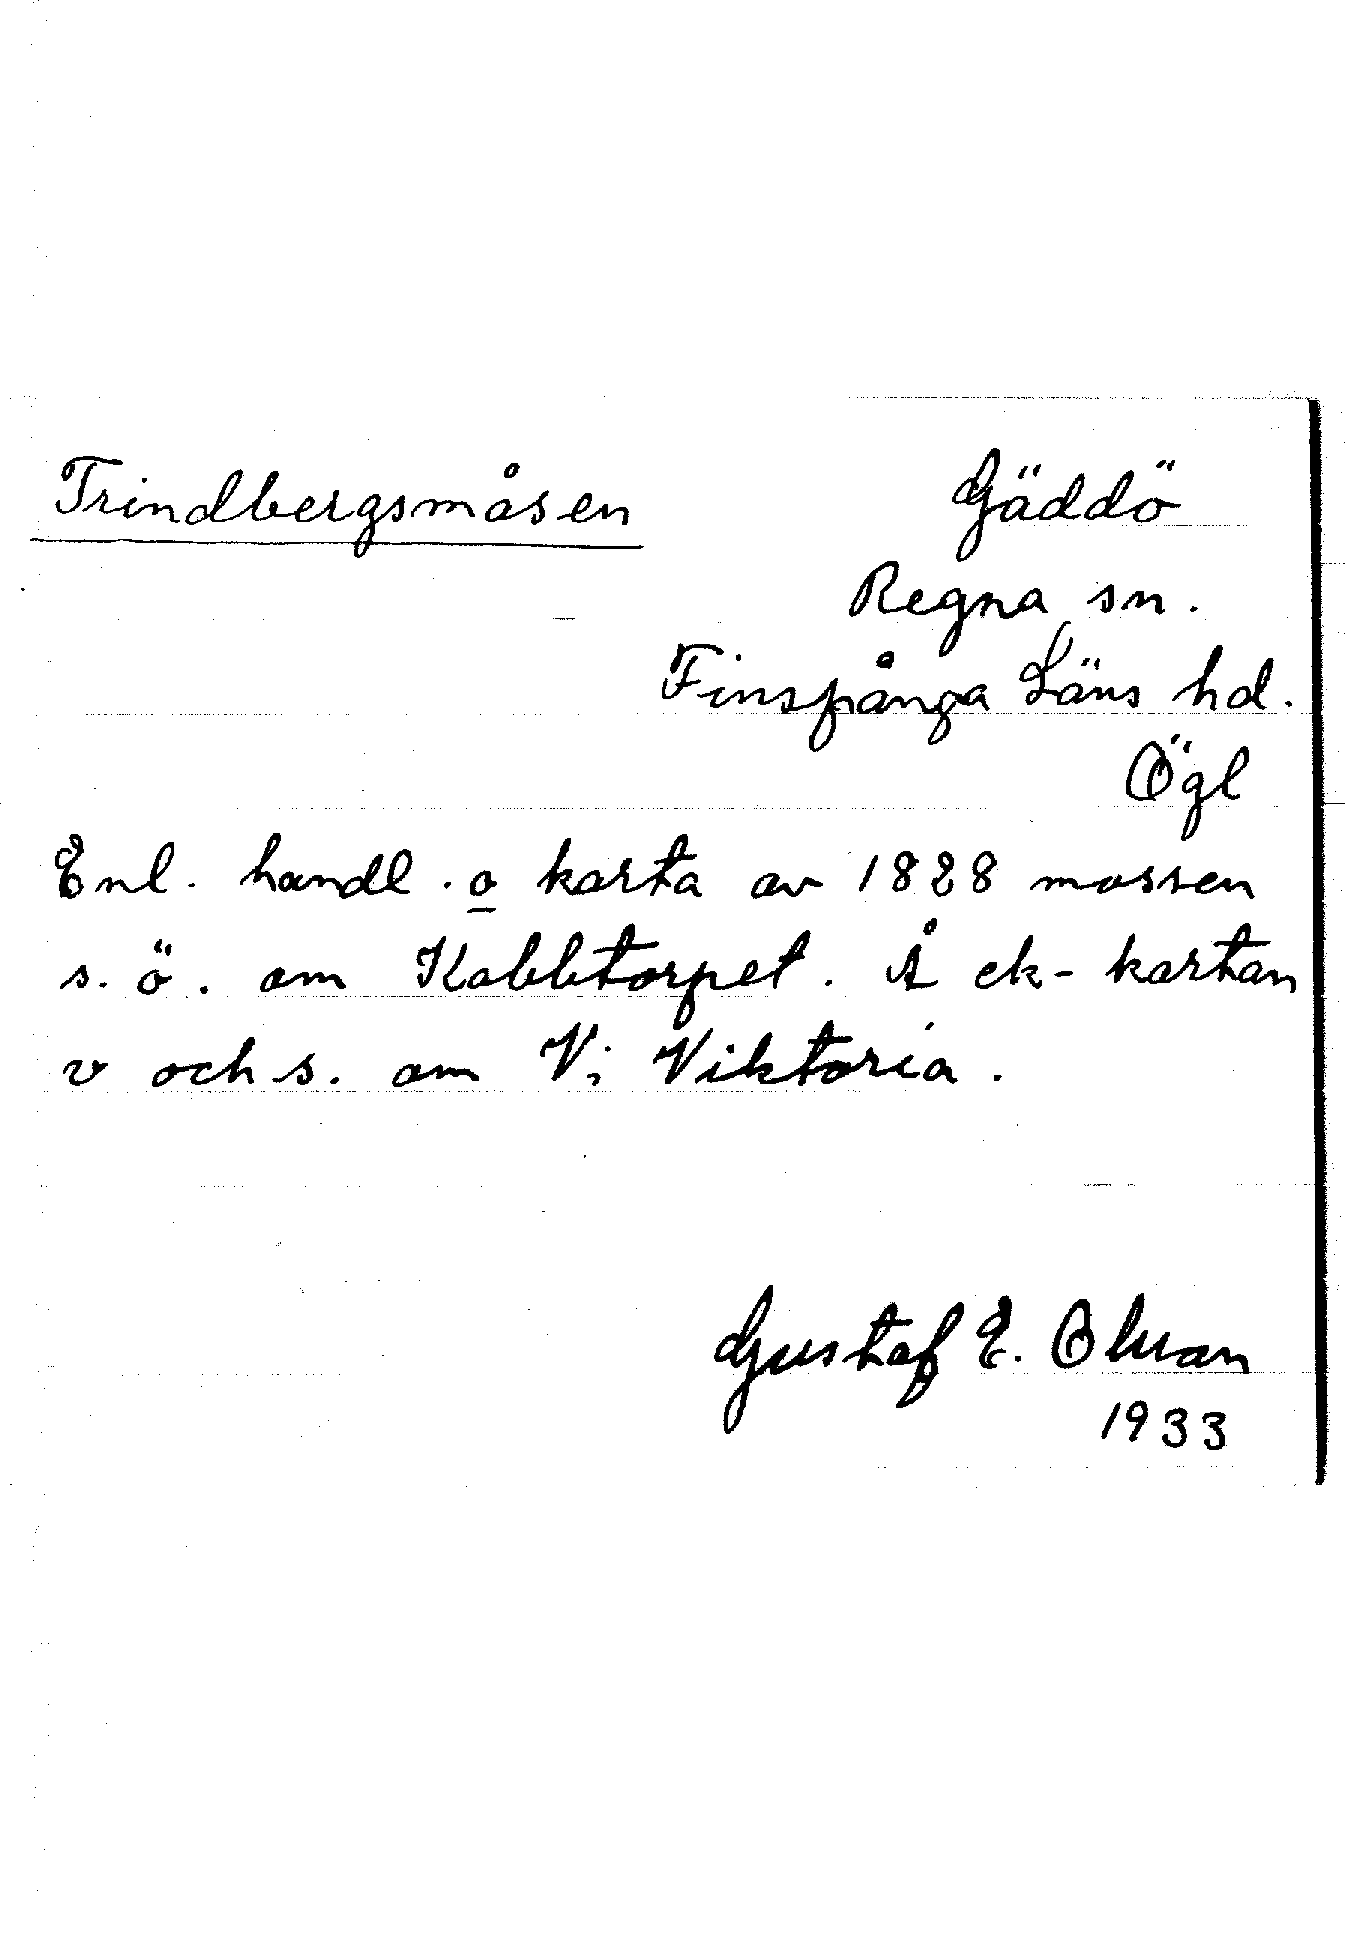 Trindbergsmåsen
Gäddö
Regna sn.
Finspånga Läns hd.
Ögl
Enl. handl. o karta av 1828 mossen
s. ö. om Kabbtorpet. Å ek-kartan
v och s. om V; Viktoria.
Gustaf E. Olsson
1933